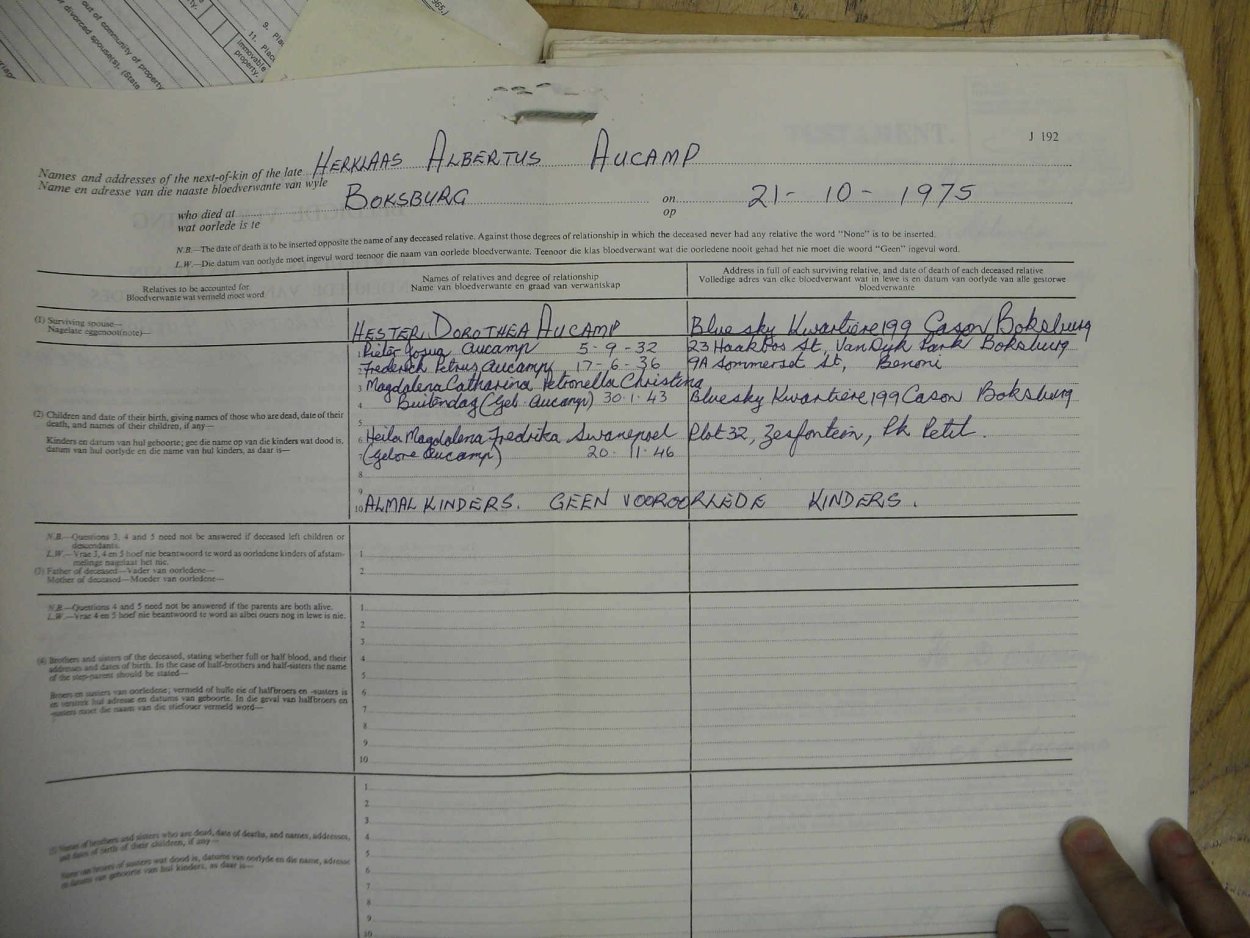 9. Pla
11. Place
immovable
property.
out of community of property
or divorced spouse(s). (State
J 192
Names and addresses of the next-of-kin of the late HERKLAAS ALBERTUS AUCAMP
Name en adresse van die naaste bloedverwante van wyle
who died at BOKSBURG on 21-10-1975
wat oorlede is te op
N.B.—The date of death is to be inserted opposite the name of any deceased relative. Against those degrees of relationship in which the deceased never had any relative the word "None" is to be inserted.
L.W.—Die datum van oorlyde moet ingevul word teenoor die naam van oorlede bloedverwante. Teenoor die klas bloedverwant wat die oorledene nooit gehad het nie moet die woord "Geen" ingevul word.
Relatives to be accounted for
Bloedverwante wat vermeld moet word
Names of relatives and degree of relationship
Name van bloedverwante en graad van verwantskap
Address in full of each surviving relative, and date of death of each deceased relative
Volledige adres van elke bloedverwant wat in lewe is en datum van oorlyde van alle gestorwe
bloedverwante
(1) Surviving spouse—
Nagelate eggenoot(note)—
HESTER DOROTHEA AUCAMP Bluesky Kwartiere 199 Cason Boksburg
1 Pieter Josua Aucamp 5-9-32 23 Haakbos St, Van Dyk Park Boksburg
2 Frederick Petrus Aucamp 17-6-36 9A Sommerset St, Benoni
3 Magdalena Catharina Petronella Christina
4 Buitendag (Geb. Aucamp) 30.1.43 Bluesky Kwartiere 199 Cason Boksburg
(2) Children and date of their birth, giving names of those who are dead, date of their
death, and names of their children, if any—
Kinders en datum van hul geboorte; gee die name op van die kinders wat dood is,
datum van hul oorlyde en die name van hul kinders, as daar is—
5
6 Heila Magdalena Fredrika Swanepoel Plot 32, Zesfontein, Pk Petit.
7 (gebore Aucamp) 20.11.46
8
9
10 ALMAL KINDERS. GEEN VOOROORLEDE KINDERS.
N.B.—Questions 3, 4 and 5 need not be answered if deceased left children or
descendants.
L.W.—Vrae 3, 4 en 5 hoef nie beantwoord te word as oorledene kinders of afstam-
melinge nagelaat het nie.
(3) Father of deceased—Vader van oorledene—
Mother of deceased—Moeder van oorledene—
1
2
N.B.—Questions 4 and 5 need not be answered if the parents are both alive.
L.W.—Vrae 4 en 5 hoef nie beantwoord te word as albei ouers nog in lewe is nie.
(4) Brothers and sisters of the deceased, stating whether full or half blood, and their
addresses and dates of birth. In the case of half-brothers and half-sisters the name
of the step-parent should be stated—
Broers en susters van oorledene; vermeld of hulle eie of halfbroers en -susters is
en verstrek hul adresse en datums van geboorte. In die geval van halfbroers en
-susters moet die naam van die stiefouer vermeld word—
1
2
3
4
5
6
7
8
9
10
(5) Names of brothers and sisters who are dead, date of deaths, and names, addresses,
and dates of birth of their children, if any—
Name van broers of susters wat dood is, datums van oorlyde en die name, adresse
en datums van geboorte van hul kinders, as daar is—
1
2
3
4
5
6
7
8
9
10